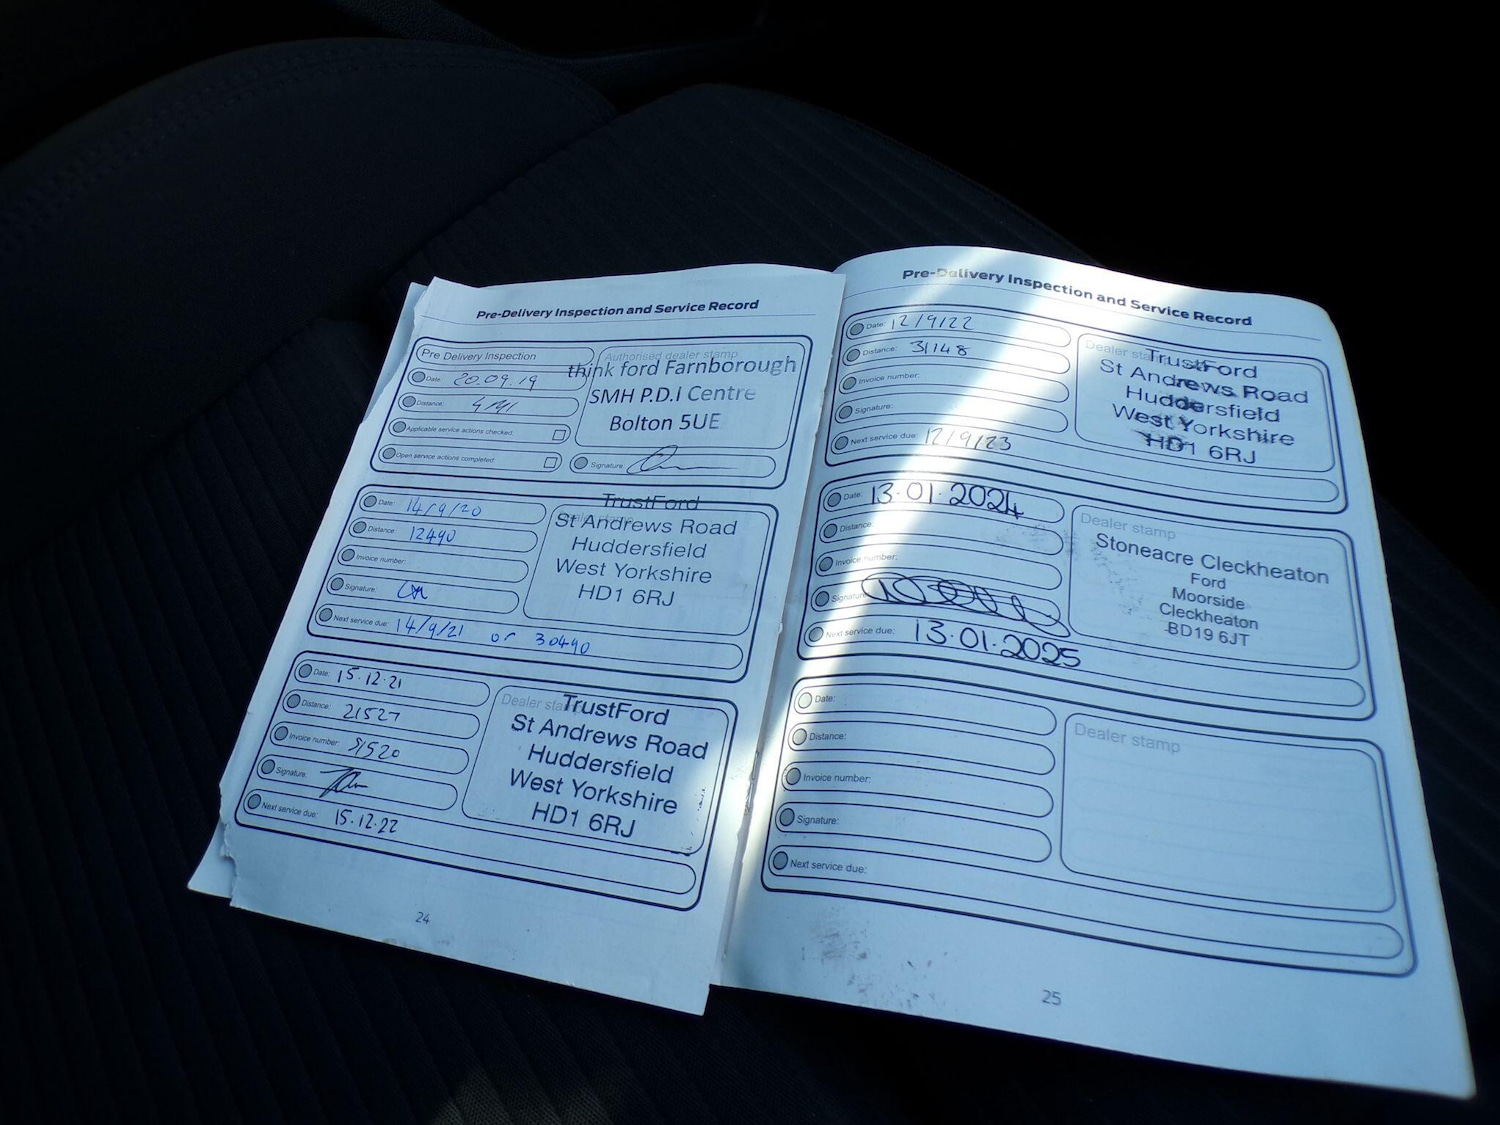 Pre-Delivery Inspection and Service Record
Pre Delivery Inspection
Date: 20.09.19
Distance:
Applicable service actions checked:
Open service actions completed:
Authorised dealer stamp
think ford Farnborough
SMH P.D.I Centre
Bolton 5UE
Signature
Date: 14/9/20
Distance: 12490
Invoice number:
Signature:
Next service due: 14/9/21 or 30490
Dealer stamp
TrustFord
St Andrews Road
Huddersfield
West Yorkshire
HD1 6RJ
Date: 15.12.21
Distance: 21527
Invoice number: 91520
Signature:
Next service due: 15.12.22
Dealer stamp
TrustFord
St Andrews Road
Huddersfield
West Yorkshire
HD1 6RJ
24
Pre-Delivery Inspection and Service Record
Date: 12/9/22
Distance: 31148
Invoice number:
Signature:
Next service due: 12/9/23
Dealer stamp
TrustFord
St Andrews Road
Huddersfield
West Yorkshire
HD1 6RJ
Date: 13.01.2024
Distance:
Invoice number:
Signature:
Next service due: 13.01.2025
Dealer stamp
Stoneacre Cleckheaton
Ford
Moorside
Cleckheaton
BD19 6JT
Date:
Distance:
Invoice number:
Signature:
Next service due:
Dealer stamp
25